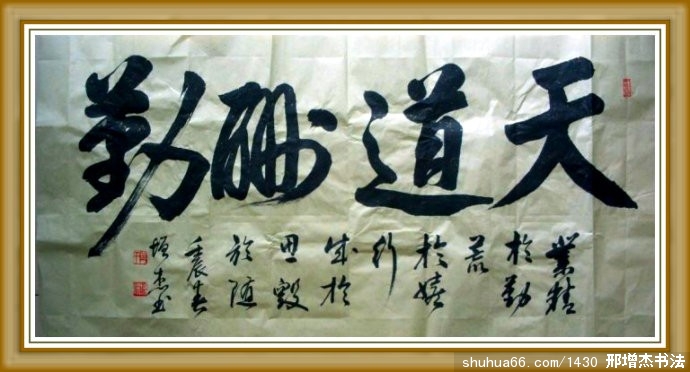 天道酬勤
業精
於勤
荒
於嬉
行
成於
思毀
於随
壬辰春
增杰书
shuhua66.com/1430 邢增杰书法